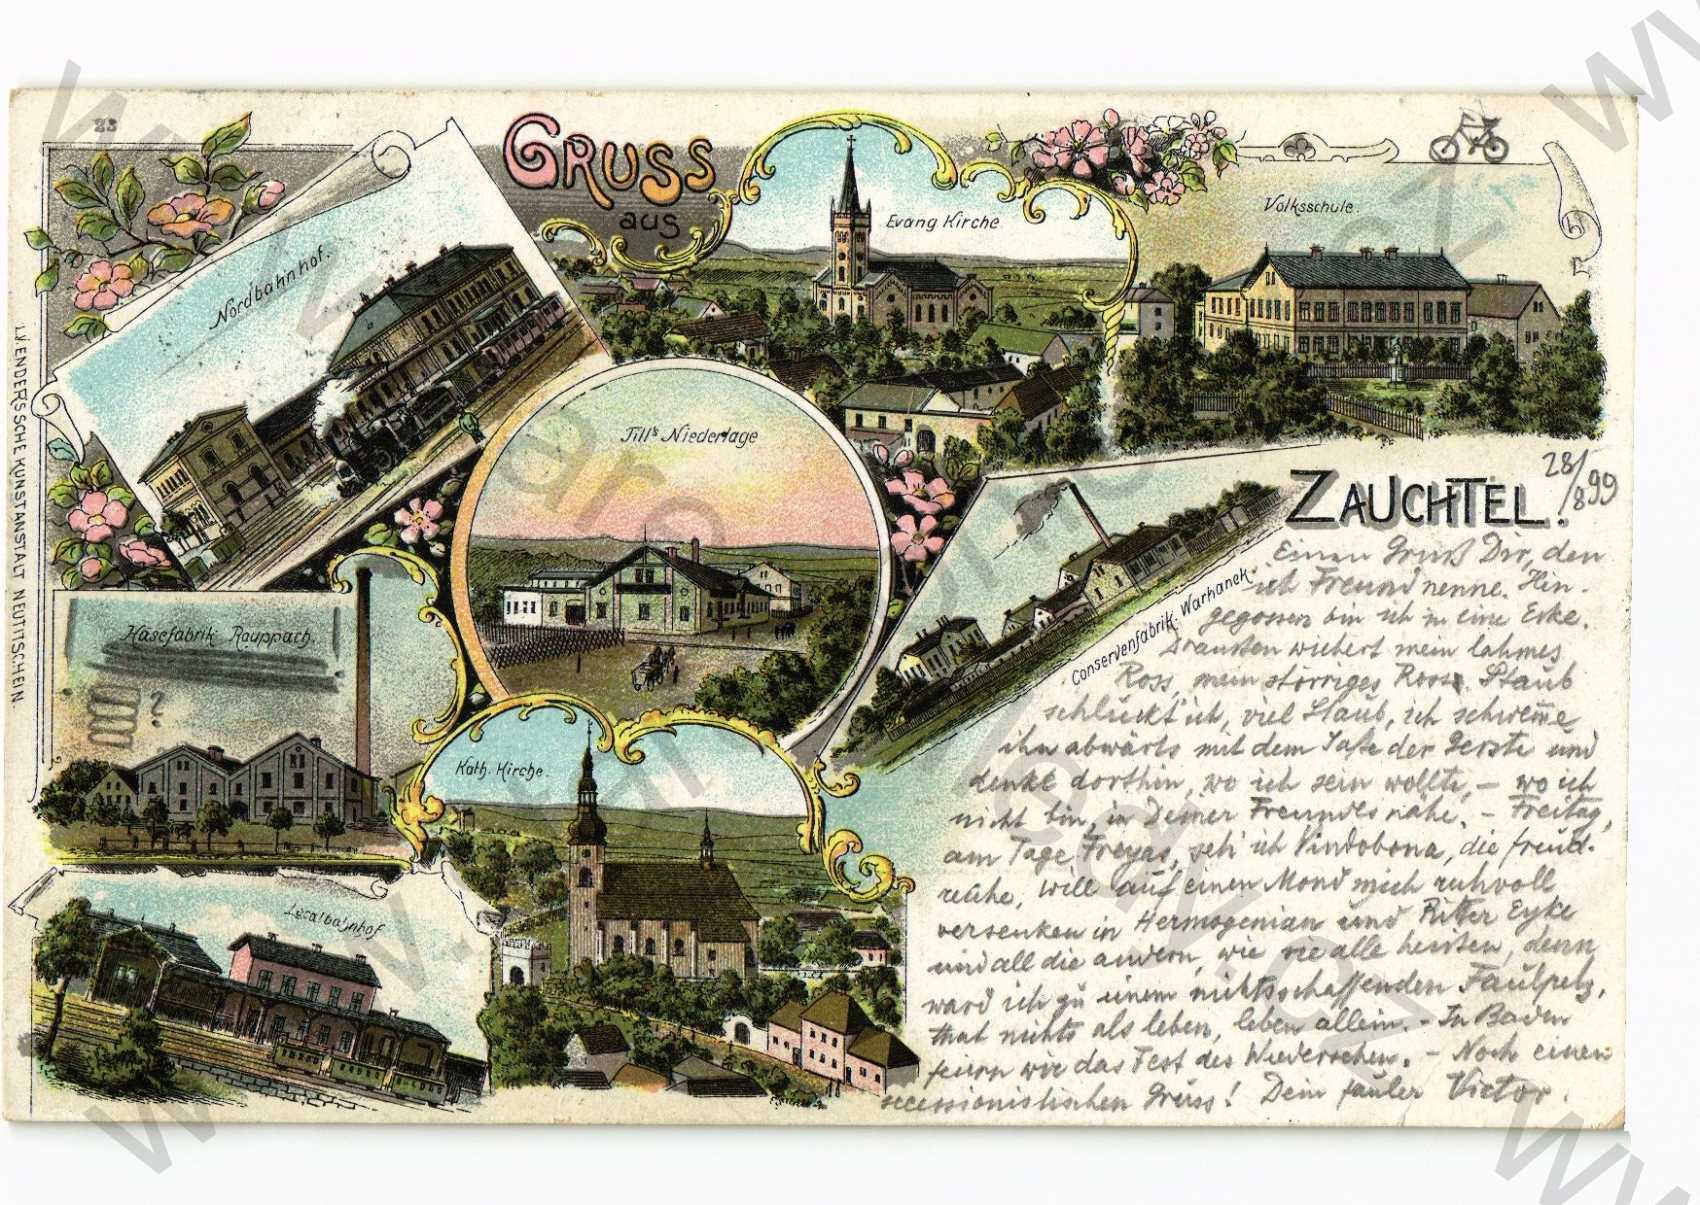 23
GRUSS
aus
Nordbahnhof.
Evang Kirche
Volksschule.
Till's Niederlage
ZAUCHTEL.
28/8 99
Conservenfabrik Warhanek.
Käsefabrik Rauppach.
?
Kath. Kirche.
Localbahnhof
L.V. ENDERS'SCHE KUNSTANSTALT NEUTITSCHEIN
Einen Gruß Dir, den
ich Freund nenne. Hin-
gegossen bin ich in eine Ecke.
Draußen wiehert mein lahmes
Ross, mein störriges Ross. Staub
schluckt' ich, viel Staub, ich schwemme
ihn abwärts mit dem Safte der Gerste und
denke dorthin, wo ich sein wollte, – wo ich
nicht bin, in Deiner Freundesnähe. – Freitag,
am Tage Freyas, seh' ich Vindobona, die freud-
reiche, will auf einen Mond mich ruhvoll
versenken in Hermogenian und Ritter Eyke
und all die andern, wie sie alle heißen, denn
ward ich zu einem nichtsschaffenden Faulpelz,
that nichts als leben, leben allein. – In Baden
feiern wir das Fest des Wiedersehens. – Noch einen
secessionistischen Gruss! Dein fauler Victor.